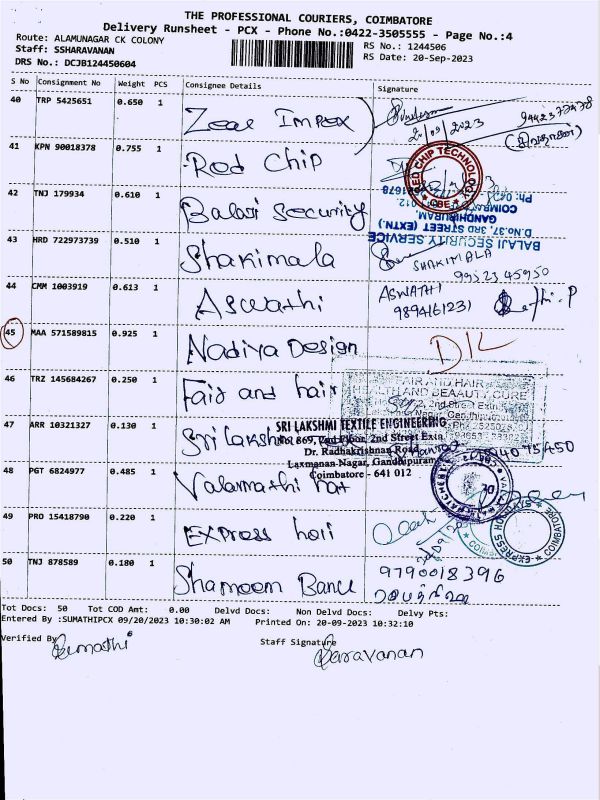 THE PROFESSIONAL COURIERS, COIMBATORE
Delivery Runsheet - PCX - Phone No.:0422-3505555 - Page No.:4
Route: ALAMUNAGAR CK COLONY
RS No.: 1244506
Staff: SSHARAVANAN
RS Date: 20-Sep-2023
DRS No.: DCJB124450604
S No Consignment No Weight PCS Consignee Details Signature
40 TRP 5425651 0.650 1 Zeal Impex
21/09/2023
41 KPN 90018378 0.755 1 Red Chip
RED CHIP TECHNOLOGY
CBE
42 TNJ 179934 0.610 1 Balaji Security
BALAJI SECURITY SERVICE
D.No.37, 3RD STREET (EXTN.)
GANDHIPURAM,
43 HRD 722973739 0.510 1 Shakimala
SHAKIMALA
9952345950
44 CMM 1003919 0.613 1 Aswathi
ASWATHI
9894161231
45 MAA 571589815 0.925 1 Nadiya Design
DIL
46 TRZ 145684267 0.250 1 Fair and hair
FAIR AND HAIR
HEALTH AND BEAAUTY CURE
47 ARR 10321327 0.130 1 Sri Lakshmi
SRI LAKSHMI TEXTILE ENGINEERING
No 869, 2nd Floor, 2nd Street Extn.
Dr. Radhakrishnan Road
Laxmanan Nagar, Gandhipuram
Coimbatore - 641 012
48 PGT 6824977 0.485 1 Valarmathi
49 PRO 15418790 0.220 1 Express
EXPRESS
COIMBATORE
50 TNJ 878589 0.180 1 Shameem Banu
9790018396
Tot Docs: 50 Tot COD Amt: 0.00 Delvd Docs: Non Delvd Docs: Delvy Pts:
Entered By :SUMATHIPCX 09/20/2023 10:30:02 AM Printed On: 20-09-2023 10:32:10
Verified By Sumathi
Staff Signature Saravanan